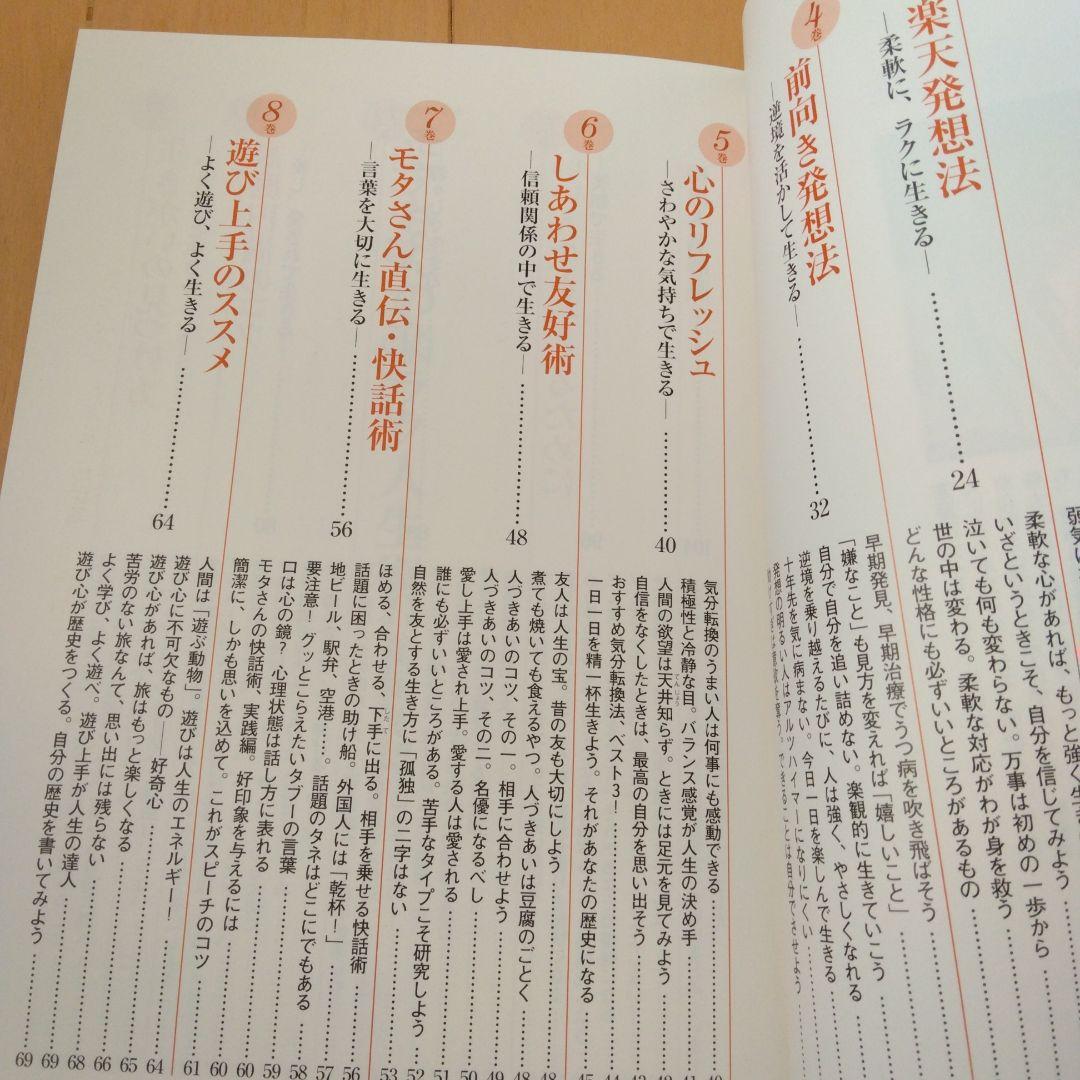 楽天発想法
―柔軟に、ラクに生きる―
24
柔軟な心があれば、もっと強く生き
いざというときこそ、自分を信じてみよう
泣いても何も変わらない。万事は初めの一歩から
世の中は変わる。柔軟な対応がわが身を救う
どんな性格にも必ずいいところがあるもの
4巻
前向き発想法
―逆境を活かして生きる―
32
早期発見、早期治療でうつ病を吹き飛ばそう
「嫌なこと」も見方を変えれば「嬉しいこと」
自分で自分を追い詰めない。楽観的に生きていこう
逆境を乗り越えるたびに、人は強く、やさしくなれる
十年先を気に病まない。今日一日を楽しんで生きる
発想の明るい人はアルツハイマーになりにくい
5巻
心のリフレッシュ
―さわやかな気持ちで生きる―
40
気分転換のうまい人は何事にも感動できる 40
積極性と冷静な目。バランス感覚が人生の決め手 41
人間の欲望は天井知らず。ときには足元を見てみよう 42
てんじょう
自信をなくしたときは、最高の自分を思い出そう 43
おすすめ気分転換法、ベスト3！ 44
一日一日を精一杯生きよう。それがあなたの歴史になる 45
6巻
しあわせ友好術
―信頼関係の中で生きる―
48
友人は人生の宝。昔の友も大切にしよう 48
煮ても焼いても食えるやつ。人づきあいは豆腐のごとく 48
人づきあいのコツ、その一。相手に合わせよう 49
人づきあいのコツ、その二。名優になるべし 50
愛し上手は愛され上手。愛する人は愛される 51
誰にも必ずいいところがある。苦手なタイプこそ研究しよう 52
自然を友とする生き方に「孤独」の二字はない 53
7巻
モタさん直伝・快話術
―言葉を大切に生きる―
56
ほめる、合わせる、下手に出る。相手を乗せる快話術 56
したて
話題に困ったときの助け船。外国人には「乾杯！」 57
地ビール、駅弁、空港……。話題のタネはどこにでもある 58
要注意！ グッとこらえたいタブーの言葉 59
口は心の鏡？ 心理状態は話し方に表れる 60
モタさんの快話術、実践編。好印象を与えるには 60
簡潔に、しかも思いを込めて。これがスピーチのコツ 61
8巻
遊び上手のススメ
―よく遊び、よく生きる―
64
人間は「遊ぶ動物」。遊びは人生のエネルギー！ 64
遊び心に不可欠なもの――好奇心 65
遊び心があれば、旅はもっと楽しくなる 66
苦労のない旅なんて、思い出には残らない 68
よく学び、よく遊べ。遊び上手が人生の達人 69
遊び心が歴史をつくる。自分の歴史を書いてみよう 69